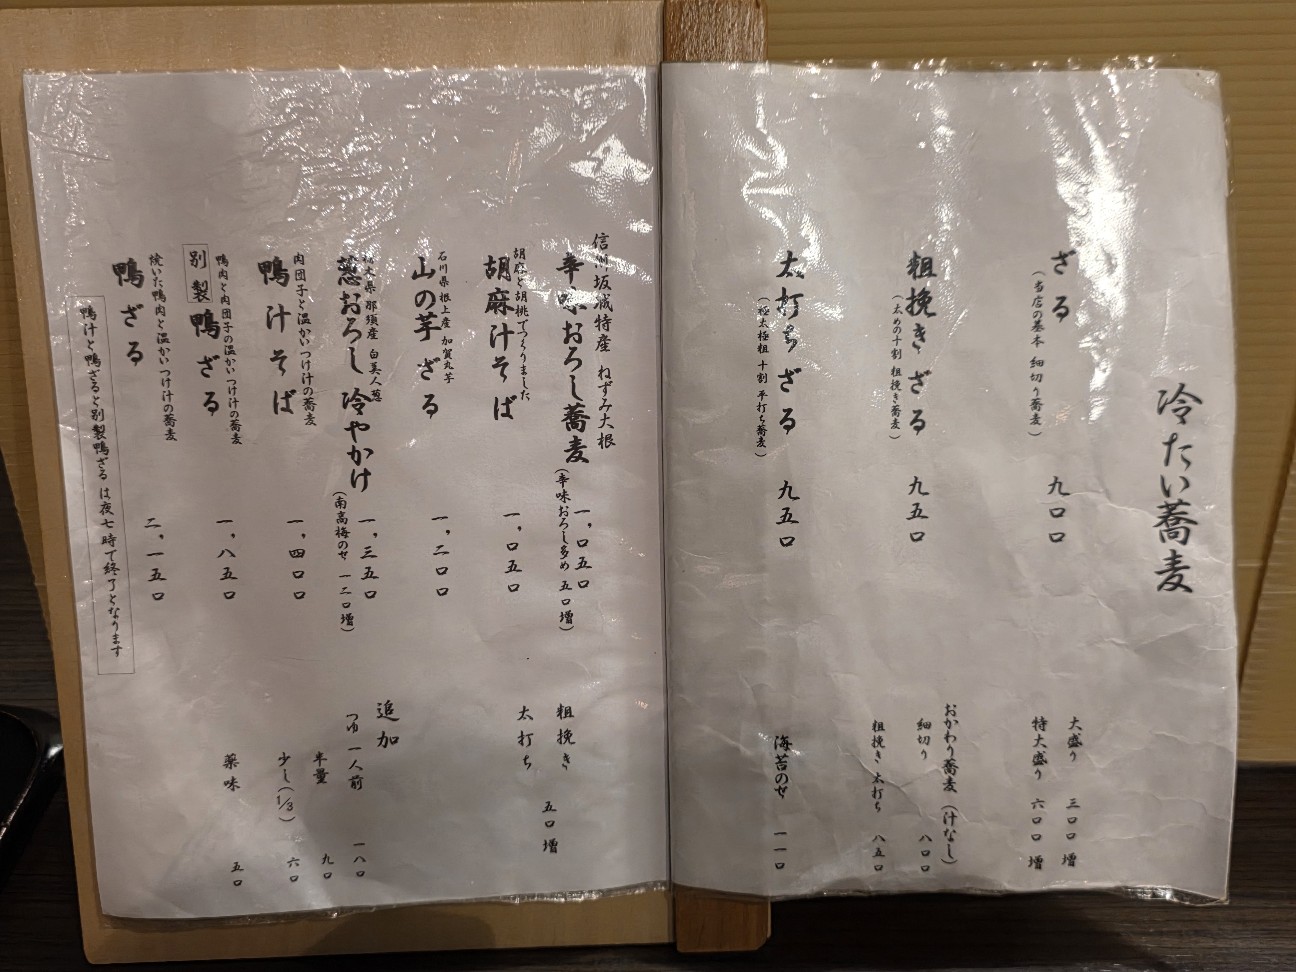 冷たい蕎麦
ざる 九〇〇
(当店の基本 細切り蕎麦)
粗挽きざる 九五〇
(太めの十割 粗挽き蕎麦)
太打ちざる 九五〇
(極太極粗 十割 平打ち蕎麦)
大盛り 三〇〇増
特大盛り 六〇〇増
おかわり蕎麦(汁なし)
細切り 八〇〇
粗挽き 太打ち 八五〇
海苔のせ 一一〇
信州坂城特産 ねずみ大根
辛味おろし蕎麦 一,〇五〇
(辛味おろし多め 五〇増)
胡麻と胡桃でつくりました
胡麻汁そば 一,〇五〇
石川県 根上産 加賀丸芋
山の芋ざる 一,二〇〇
栃木県 那須産 白美人葱
葱おろし冷やかけ 一,三五〇
(南高梅のせ 一二〇増)
肉団子と温かいつけ汁の蕎麦
鴨汁そば 一,四〇〇
鴨肉と肉団子の温かいつけ汁の蕎麦
別製鴨ざる 一,八五〇
焼いた鴨肉と温かいつけ汁の蕎麦
鴨ざる 二,一五〇
鴨汁と鴨ざると別製鴨ざる は夜七時で終了となります
粗挽き
太打ち 五〇増
追加
つゆ 一人前 一八〇
半量 九〇
少し(1/3) 六〇
薬味 五〇